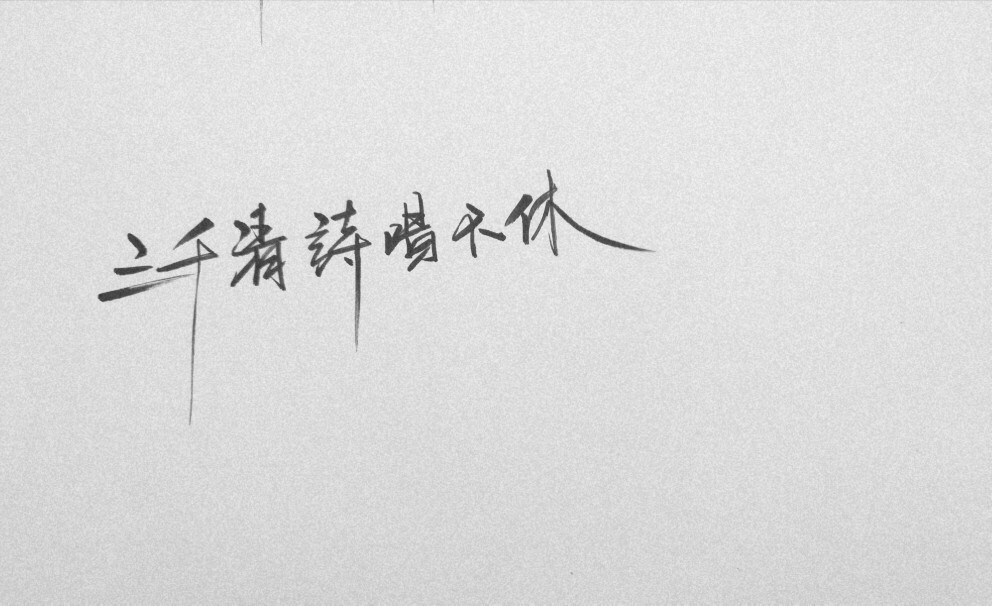 三千清詩唱不休